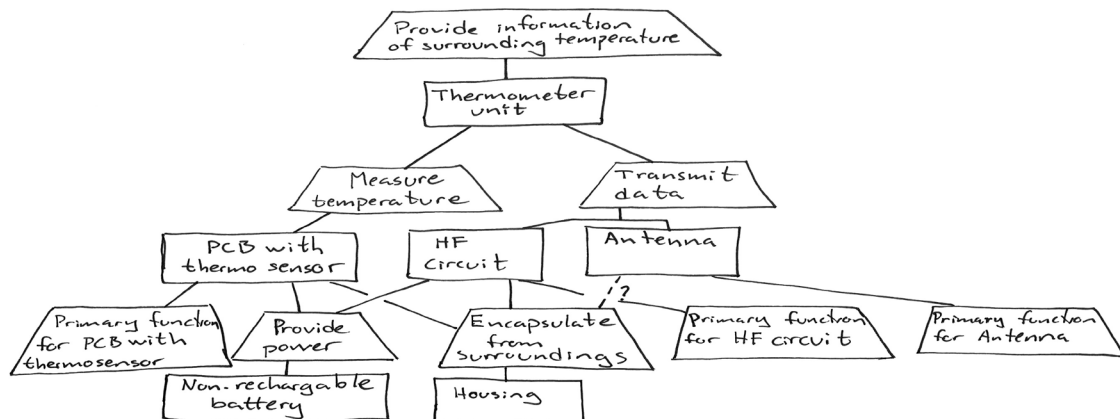 Provide information
of surrounding temperature
Thermometer
unit
Measure
temperature
Transmit
data
PCB with
thermo sensor
HF
circuit
Antenna
?
Primary function
for PCB with
thermosensor
Provide
power
Encapsulate
from
surroundings
Primary function
for HF circuit
Primary function
for Antenna
Non-rechargable
battery
Housing